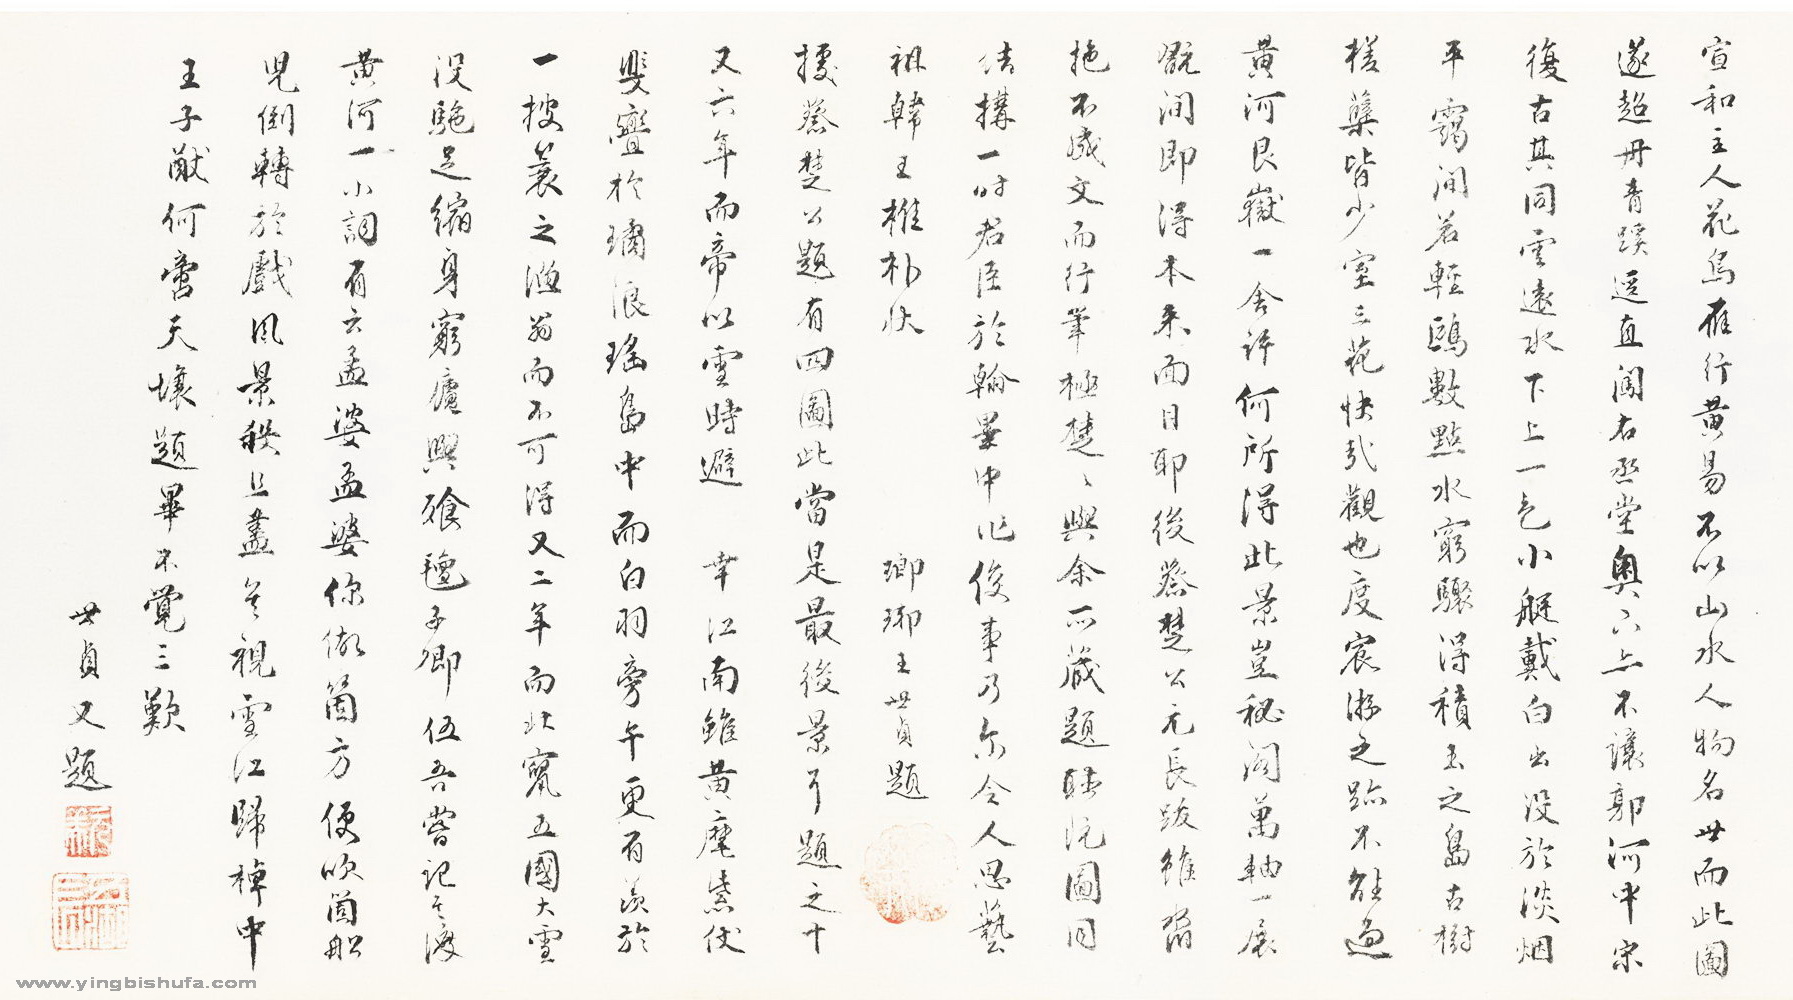 宣和主人花鳥雁行黃易不以山水人物名世而此圖
遂超丹青蹊逕直闖右丞堂奧下亦不讓郭河中宋
復古其同雲遠水下上一色小艇戴白出沒於淡烟
平靄間若輕鷗數點水窮驟得積玉之島古樹
槎蘖皆少室三花快哉觀也度宸游之跡不能過
黃河艮嶽一舍許何所得此景豈秘閣萬軸一展
翫間即得本來面目耶後蔡楚公元長跋雖潦
拖不成文而行筆極楚楚與余所藏題聽阮圖同
結搆一時君臣於翰墨中作俊事乃爾令人思藝
祖韓王椎朴狀 瑯琊王世貞題
據蔡楚公題有四圖此當是最後景耳題之十
又六年而帝以雪時避 幸江南雖黃麾紫仗
斐亹於璚浪瑤島中而白羽旁午更有羨於
一披蓑之漁翁而不可得又二年而北竄五國大雪
沒駝足縮身窮廬與飧氊子卿伍吾嘗記其渡
黃河一小詞有云孟婆孟婆你做箇方便吹箇船
兒倒轉於戲風景秩且盡矣視雪江歸棹中
王子猷何啻天壤題畢不覺三歎
世貞又題
www.yingbishufa.com